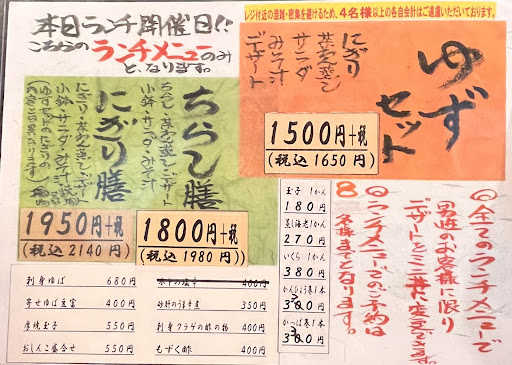 レジ付近の混雑・密集を避けるため、4名様以上の各自会計はご遠慮いただいております。
本日ランチ開催日!!
こちらのランチメニューのみ
と、なります。
ゆず
セット
にぎり
茶碗蒸し
サラダ
みそ汁
デザート
1500円+税
(税込1650円)
ちらし膳
ちらし・茶碗蒸し・デザート
小鉢・サラダ・みそ汁
1800円+税
(税込1980円))
にぎり膳
にぎり・茶碗蒸し・デザート
小鉢・サラダ・みそ汁・焼物
(ゆずセットのにぎりの
内容と異なります)
1950円+税
(税込2140円)
◎全てのランチメニューで
男性のお客様に限り
デザートとミニ丼に変更できます。
◎ランチメニューでのご予約は
8名様までとなります。
玉子 1かん
180円
蒸し海老 1かん
270円
いくら 1かん
380円
かんぴょう巻 1本
300円
かっぱ巻 1本
300円
刺身ゆば 680円
寄せゆば豆富 400円
厚焼玉子 550円
おしんこ盛合せ 550円
400円
砂肝のうま煮 350円
刺身クラゲの酢の物 400円
もずく酢 400円